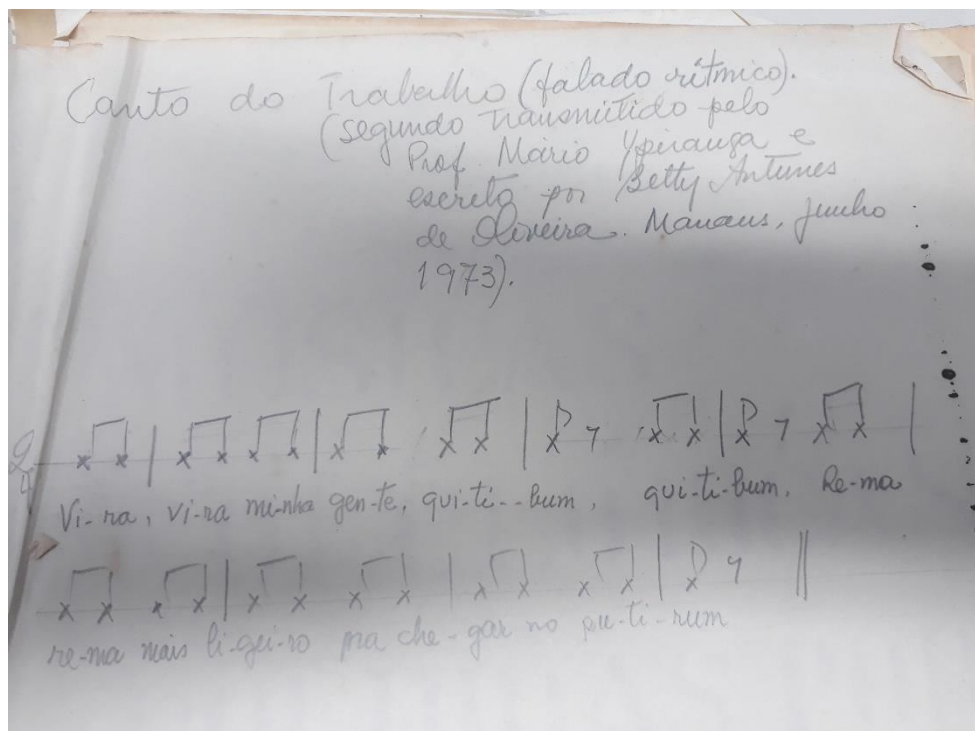 Canto do Trabalho (falado rítmico).
(segundo transmitido pelo
Prof. Mário Ypiranga e
escrito por Betty Antunes
de Oliveira. Manaus, junho
1973).
2
4
Vi-ra, vi-ra mi-nha gen-te, qui-ti--bum, qui-ti-bum, Re-ma
re-ma mais li-gei-ro pra che-gar no pu-ti-rum